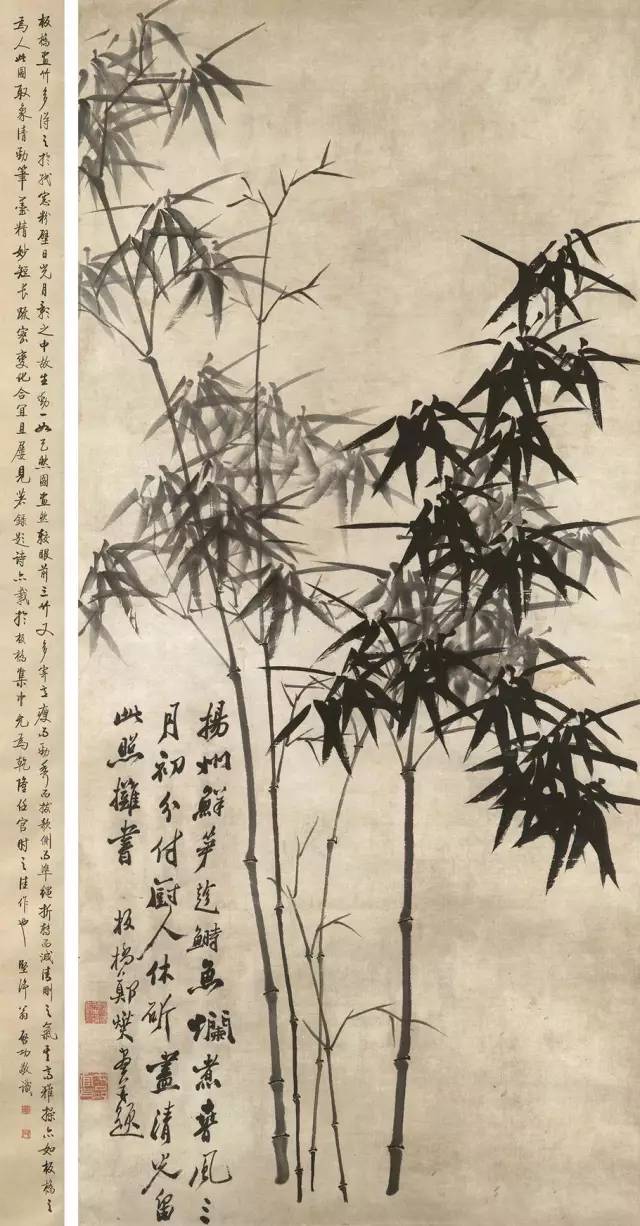 揚州鮮笋趂鰣魚爛煮春風三
月初分付厨人休斫盡清光留
此照攤書
板橋鄭燮畫并題
板橋畫竹多得之於紙窓粉壁日光月影之中故生動一如天然圖畫然較眼前之竹又多高瘦而勁秀而拔欹側而準繩折轉而剛之氣其高雅操亦如板橋之
為人此圖取象清勁筆墨精妙短長疏密變化合宜且屢見著錄題詩亦載於板橋集中允為乾隆任官時之佳作也 堅淨翁啟功敬識